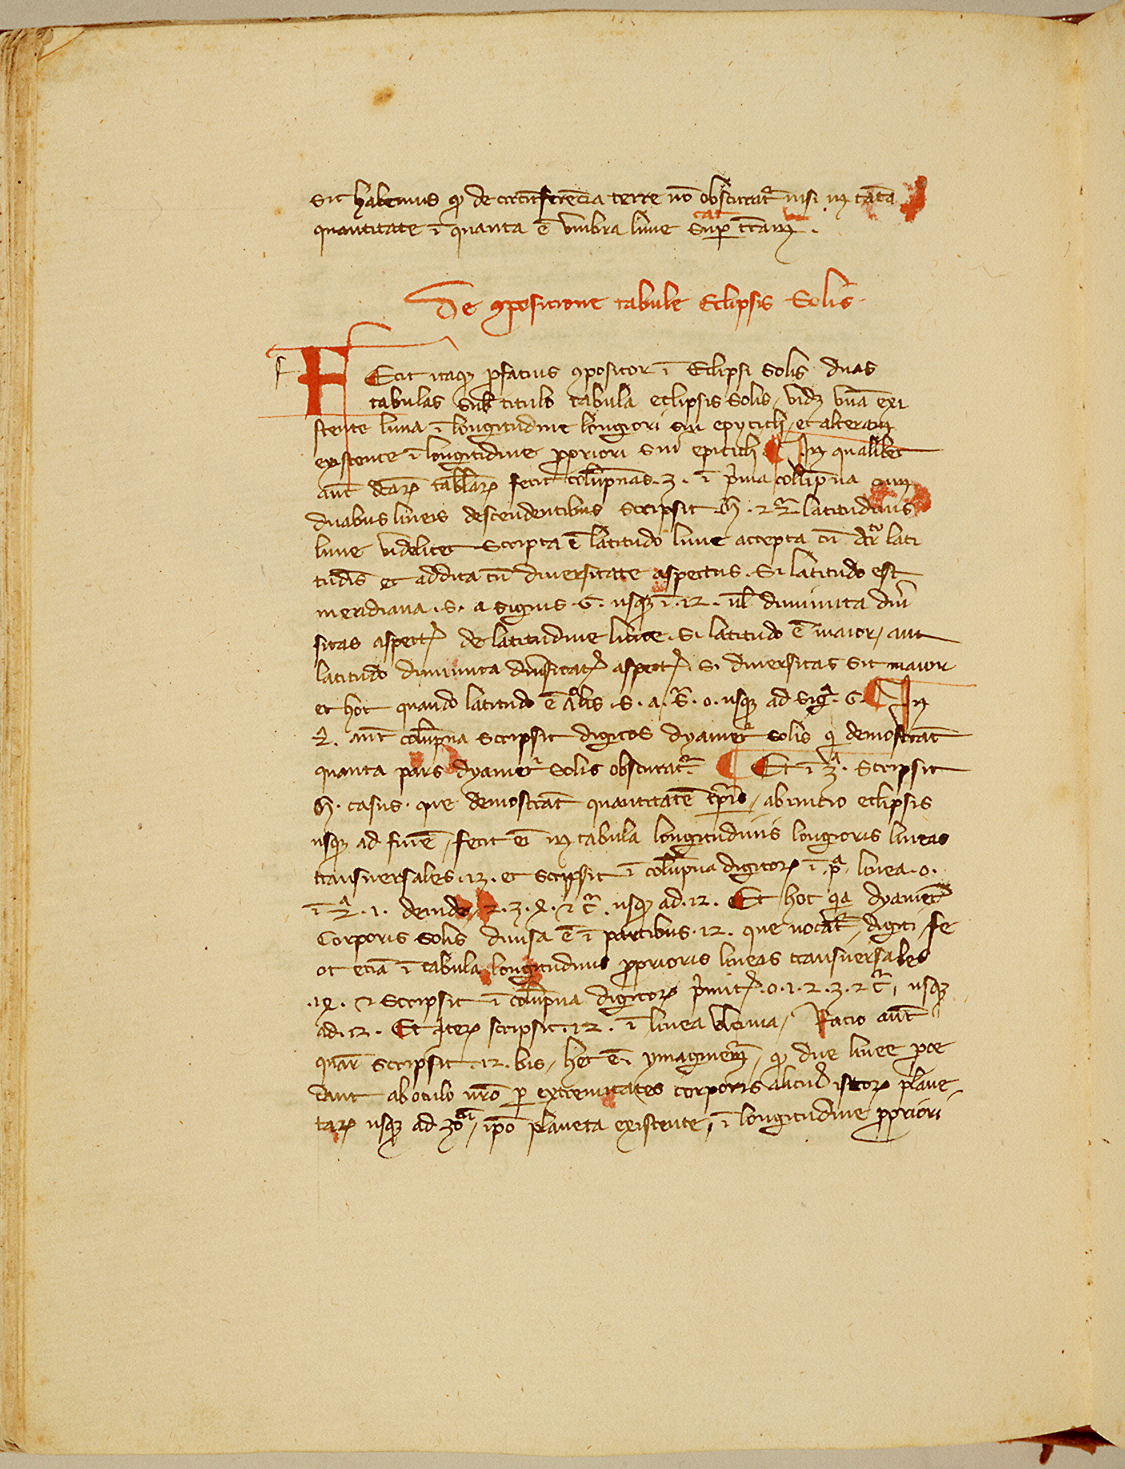 sic habemus qͥ de circūferēcia terre nō obscuratͬ nisi in tāta
quantitate ī quanta ē vmbra lune sup terram.
De ꝯposicione tabule Eclipsis Solis
FEcit itaqꝫ ꝓfatius ꝯpositor ī Eclipsi solis duas
tabulas sub titulo tabula eclipsis solis, vidꝫ vnā exi
stente luna ī longitudine longiori sui epycicli, et alteram
existente ī longitudine ꝓpriori sui epicicli. In qualibet
aūt dcāꝝ tablaꝝ fecit colūpnas .3. ī pͥma collūpna cum
duabus lineis descendentibus scripsit latitudinis
lune videlicet scripta ē latitudo lune accepta cū lati
tudīs et addita cū diversitate aspectus. Si latitudo est
meridiana .s. a signis .6. usqꝫ ī .12. ul diminuta diū
sitas aspectꝰ de latitudine lune. Si latitudo ē maior, aut
latitudo diminuta diūsitatꝭ aspectꝰ si diversitas sit maior
et hoc quando latitudo ē .s. a .0. usqꝫ ad sigᵃ .6. In
2ᵃ. aūt colūpna scripsit digitos dyametͥ solis qͥ demōstrāt
quanta pars dyametͥ solis obscuratͬ. Et ī 3ᵃ. scripsit
casus. que demostrāt quantitatē tpͥis, ab inicio eclipsis
usqꝫ ad finē, fecit eī in tabula longitudinis longioris lineas
transuersales .13. et scripsit ī colūpna digitoꝝ ī pᵃ linea .0.
ī 2ᵃ. 1. deinde .2. 3. 4. ⁊ cͣ. usqꝫ ad .12. Et hoc qia dyametͬ
corporis solis diuisa ē ī partibus .12. que uocātͬ digiti, fe
cit etiā ī tabula longitudinis ꝓprioris lineas transuersales
.14. ⁊ scripsit ī colūpna digitoꝝ pͥmitꝰ .0. 1. 2. 3. ⁊ cͣ, usqꝫ
ad .12. Et iteꝝ scripsit .12. ī linea vltima, Racio aūt
quar̄ scripsit .12. bis, hec ē. ymaginem̄, qͥ due linee ꝓce
dant ab oculo nr̄o ꝑ extremitates corporis alicuiꝰ istoꝝ plane
taꝝ usqꝫ ad ipō planeta existente, ī longitudine ꝓpriori